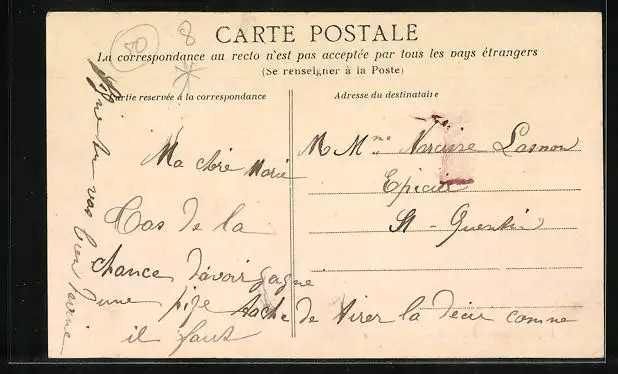 50
8
CARTE POSTALE
La correspondance au recto n'est pas acceptée par tous les pays étrangers
(Se renseigner à la Poste)
Partie reservée à la correspondance
Adresse du destinataire
M Mme Narcisse Lasnon
Epicier
St-Quentin
Ma chère Marie
tas de la
chance d'avoir gagne
d'une pipe tache de tirer la
il faut
comme